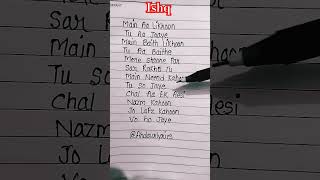 Ishq
Main Aa Likhoon
Tu Aa Jaaye
Main Baith Likhoon
Tu Aa Baithe
Mere Shaane Par
Sar Rakhe Tu
Main Neend Kahoon
Tu So Jaye
Chal Aa Ek Aesi
Nazm Kahoon
Jo Lafz Kahoon
Vo Ho Jaye
Jo L
Vo